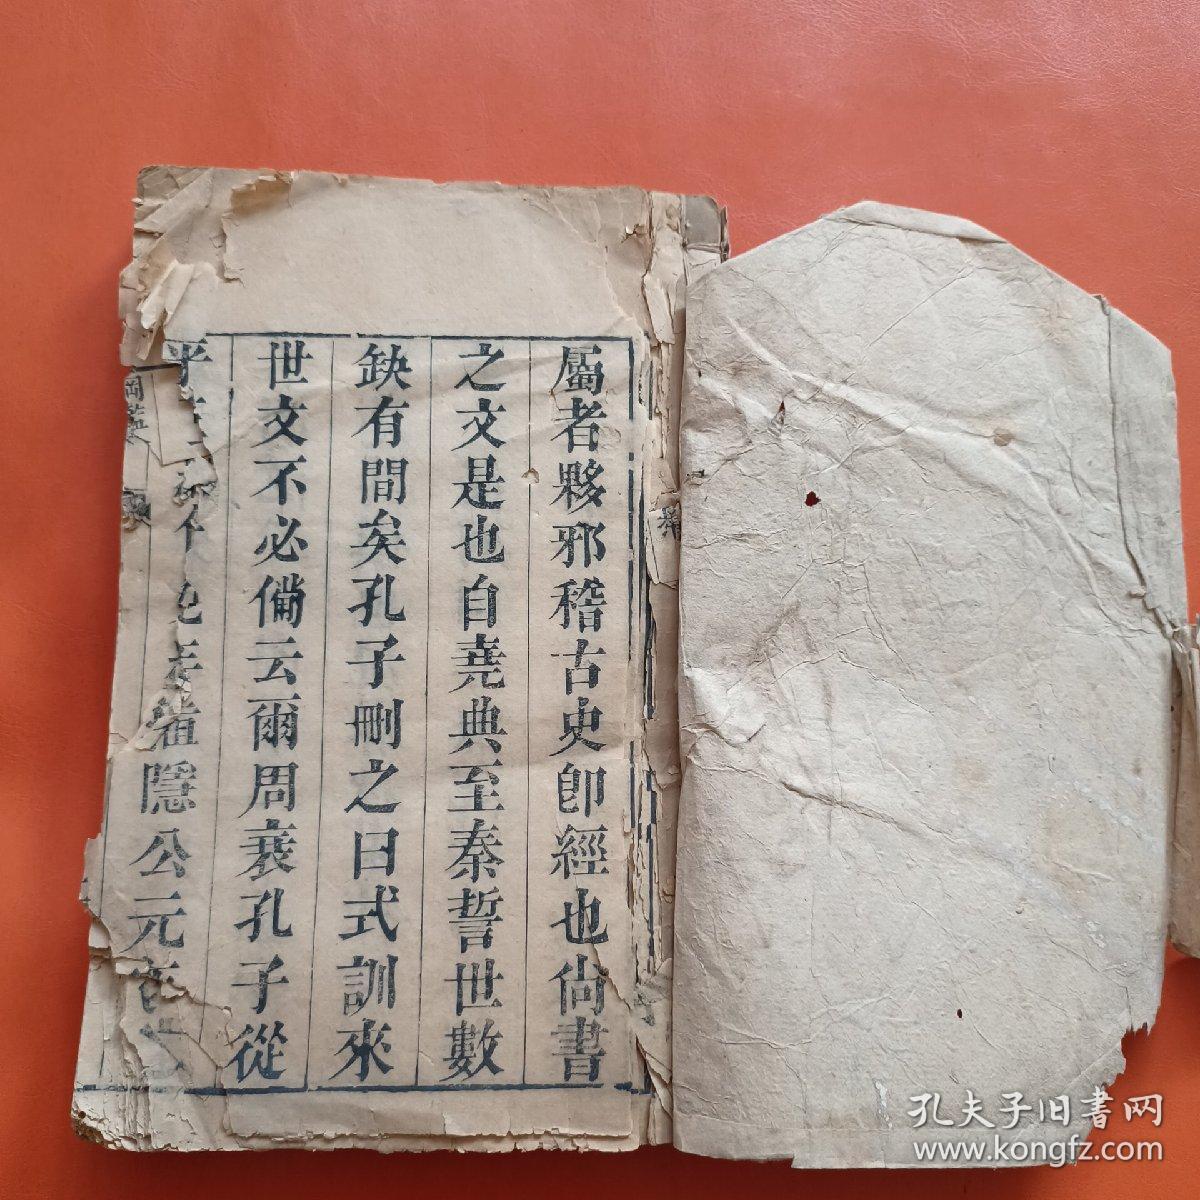 屬者夥邪稽古史卽經也尙書
之文是也自堯典至秦誓世數
缺有間矣孔子刪之曰式訓來
世文不必備云爾周衰孔子從
平隱公元
孔夫子旧书网
www.kongfz.com